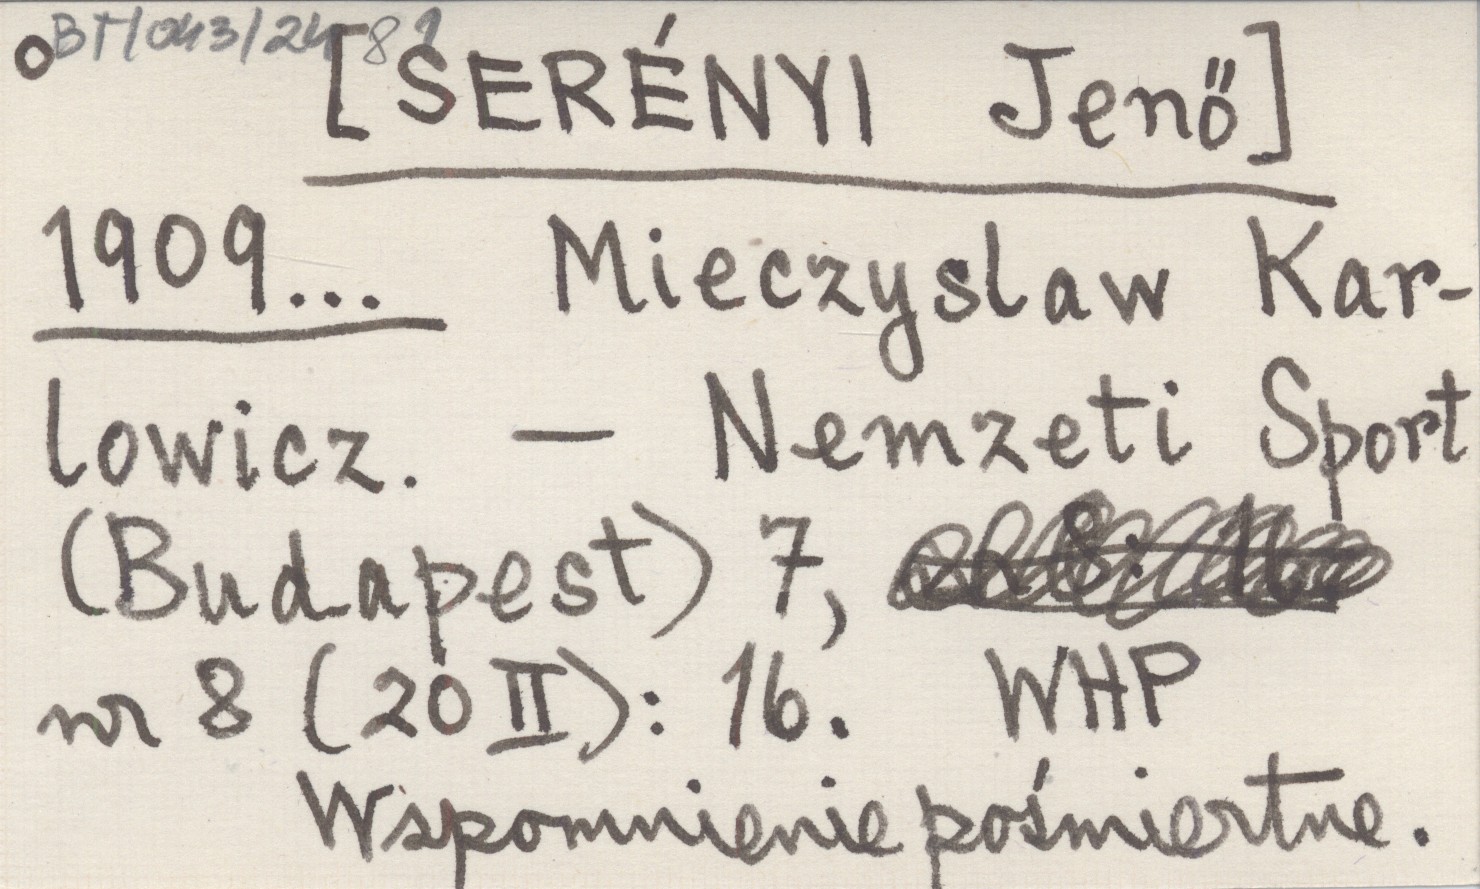 BT/043/24 81
[SERÉNYI Jenő]
1909... Mieczyslaw Kar-
lowicz. — Nemzeti Sport
(Budapest) 7,
nr 8 (20 II): 16. WHP
Wspomnienie pośmiertne.